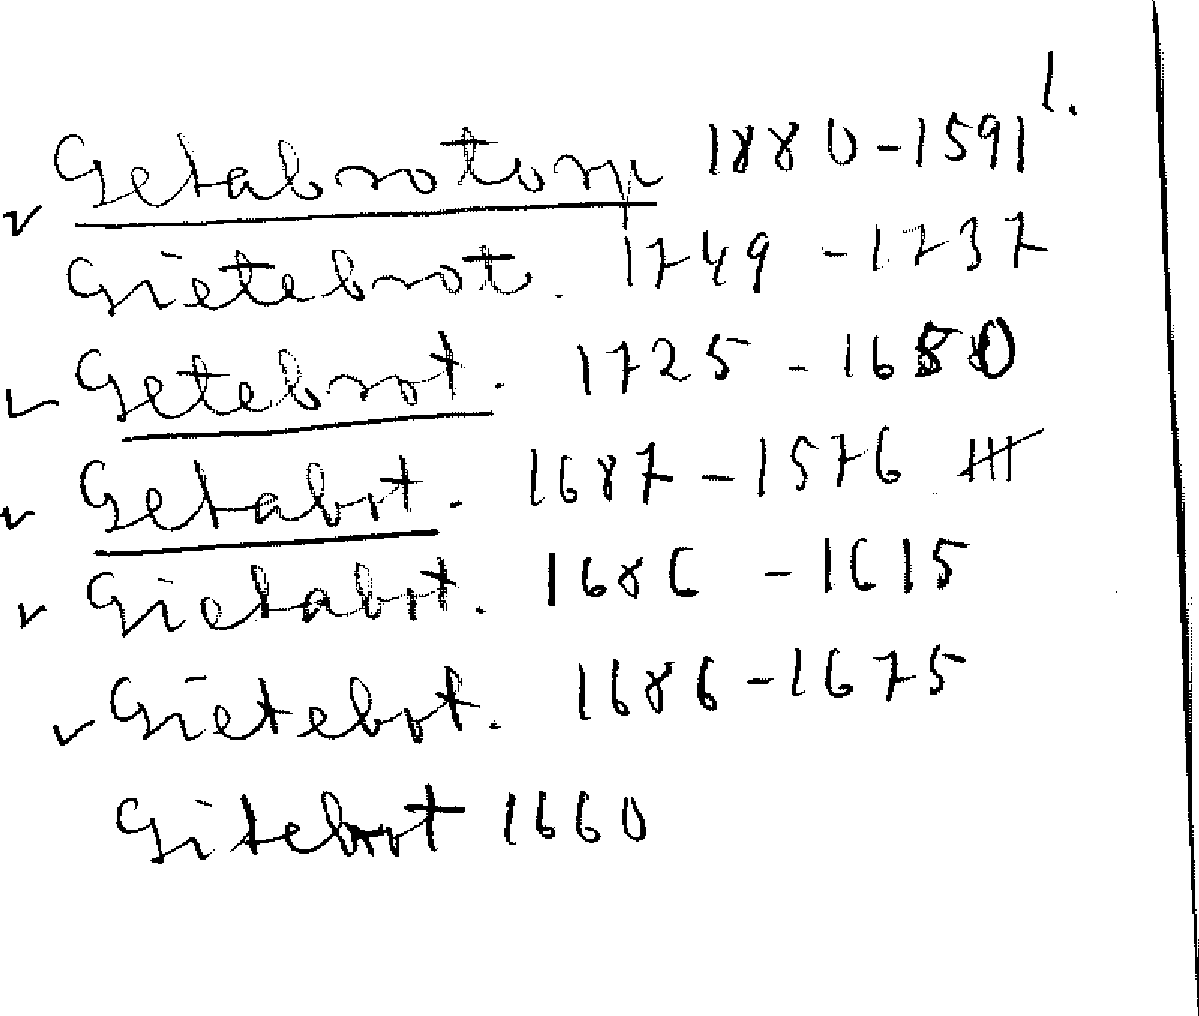 1.
✓ Getabrotorp 1880-1591
Gietebrot. 1749 - 1737
✓ Getebrot. 1725 - 1650
✓ Getabrt. 1687-1576 III
✓ Gietabrt. 1686 - 1615
✓ Gietebrt. 1686-1675
Gitebrot 1660